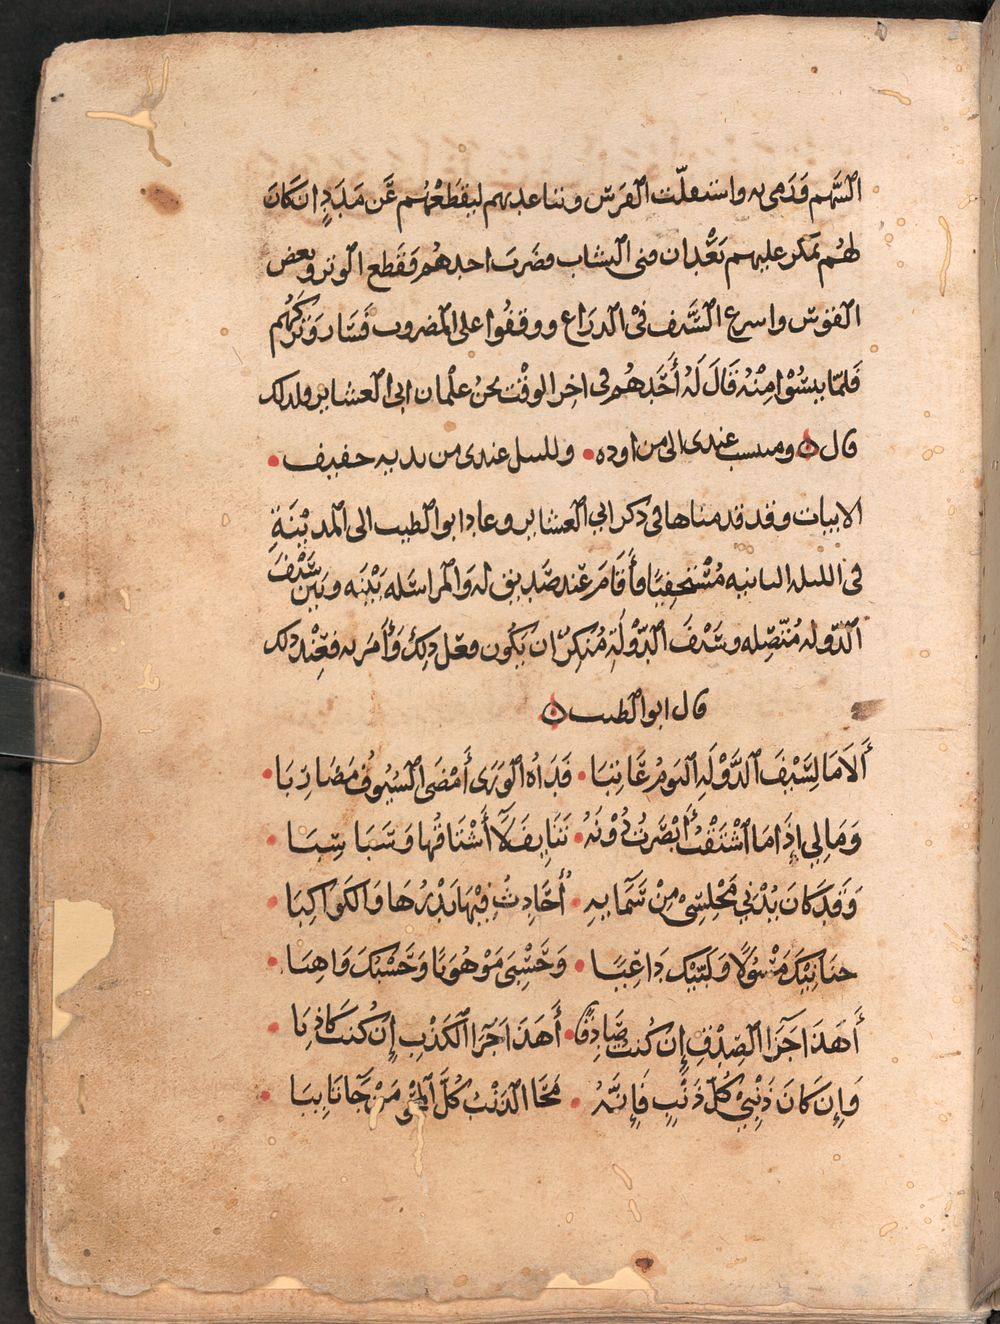 السَّهم وَرَمى به واستقلّت الفرس وتباعد بهم ليقطعَهُم عَن مَدَدٍ ان كان
لهُم ثم كر عليهم بَعْد ان فنى النشاب فضرب احدهُم فقطع الوتر وبعض
القوس واسرع السَّيف في الدراع ووقفُوا على المضروب فسَار وَتركهُم
فلمّا يئسُوا مِنْهُ قالَ لَهُ أَحَدهُم في اخر الوقْت نحنُ غلْمان ابى العشاير ولدلك
قال ومنتسب عندى الى من اوده وللنبل عندى من يديه حفيف
الابيات وقد قدمناها في ذكر ابي العشاير وعاد ابو الطيب الى المدِيْنَةِ
في الليله الثانيه مُسْتخفِيًا فأَقَامَ عند صَديق له وَالمراسَله بَيْنَه وبين سَيْف
الدّوله مُتّصِله وسَيْفَ الدَّوْلَةِ مُنكِرٌ ان يَكُون فعَل ذلِكَ وَأَمَرَ به فعِنْد ذلك
قال ابو الطيب
أَلَا مَا لِسَيْفَ الدَّوْلَهِ اليَومُ عَاتِبَا فَدَاهُ الوَرَى أَمْضَى السُيُوفْ مَضَارِبَا
وَمَا لِي إِذَا مَا اشْتَقْتُ أَبْصَرْتُ دُوْنَهُ تَنَايِفَ لَا أَشْتَاقُهَا وَسَبَاسِبَا
وَقَد كَانَ يُدْنِي مَجْلِسِى مِنْ سَمَايِهِ أُحَادِثُ فِيْهَا بَدْرُهَا وَالكَوَاكِبَا
حنَانَيْكَ مَسْؤُلًا وَلَبَّيْكَ دَاعِيَا وَحَسْبِى مَوْهُوبًا وَحَسْبُكَ وَاهِبَا
أَهَذَا جَزَا الصِدْقِ إِن كُنت صَادِقًا أَهَذَا جَزَا الكَذْبِ إِن كُنت كَاذِبَا
وَإِن كَانَ ذَنْبِيْ كُلَّ ذَنْبٍ فَإِنَّهُ مَحَا الذَنْبُ كُلَّ المحْى مَنْ جَا تَايِبَا